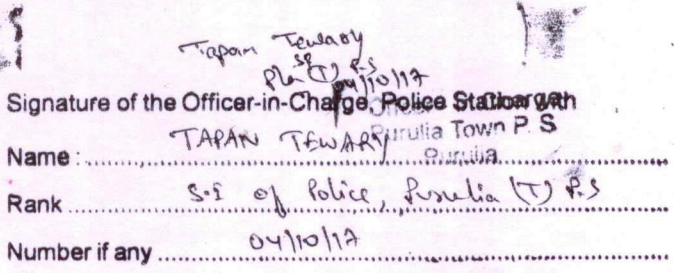 Tapan Tewary
SI
Pla (T) P.S
04/10/17
Signature of the Officer-in-Charge, Police Station with
Officer In-Charge
Purulia Town P. S
Purulia
Name : TAPAN TEWARY
Rank S.I of Police, Purulia (T) P.S
Number if any 04/10/17